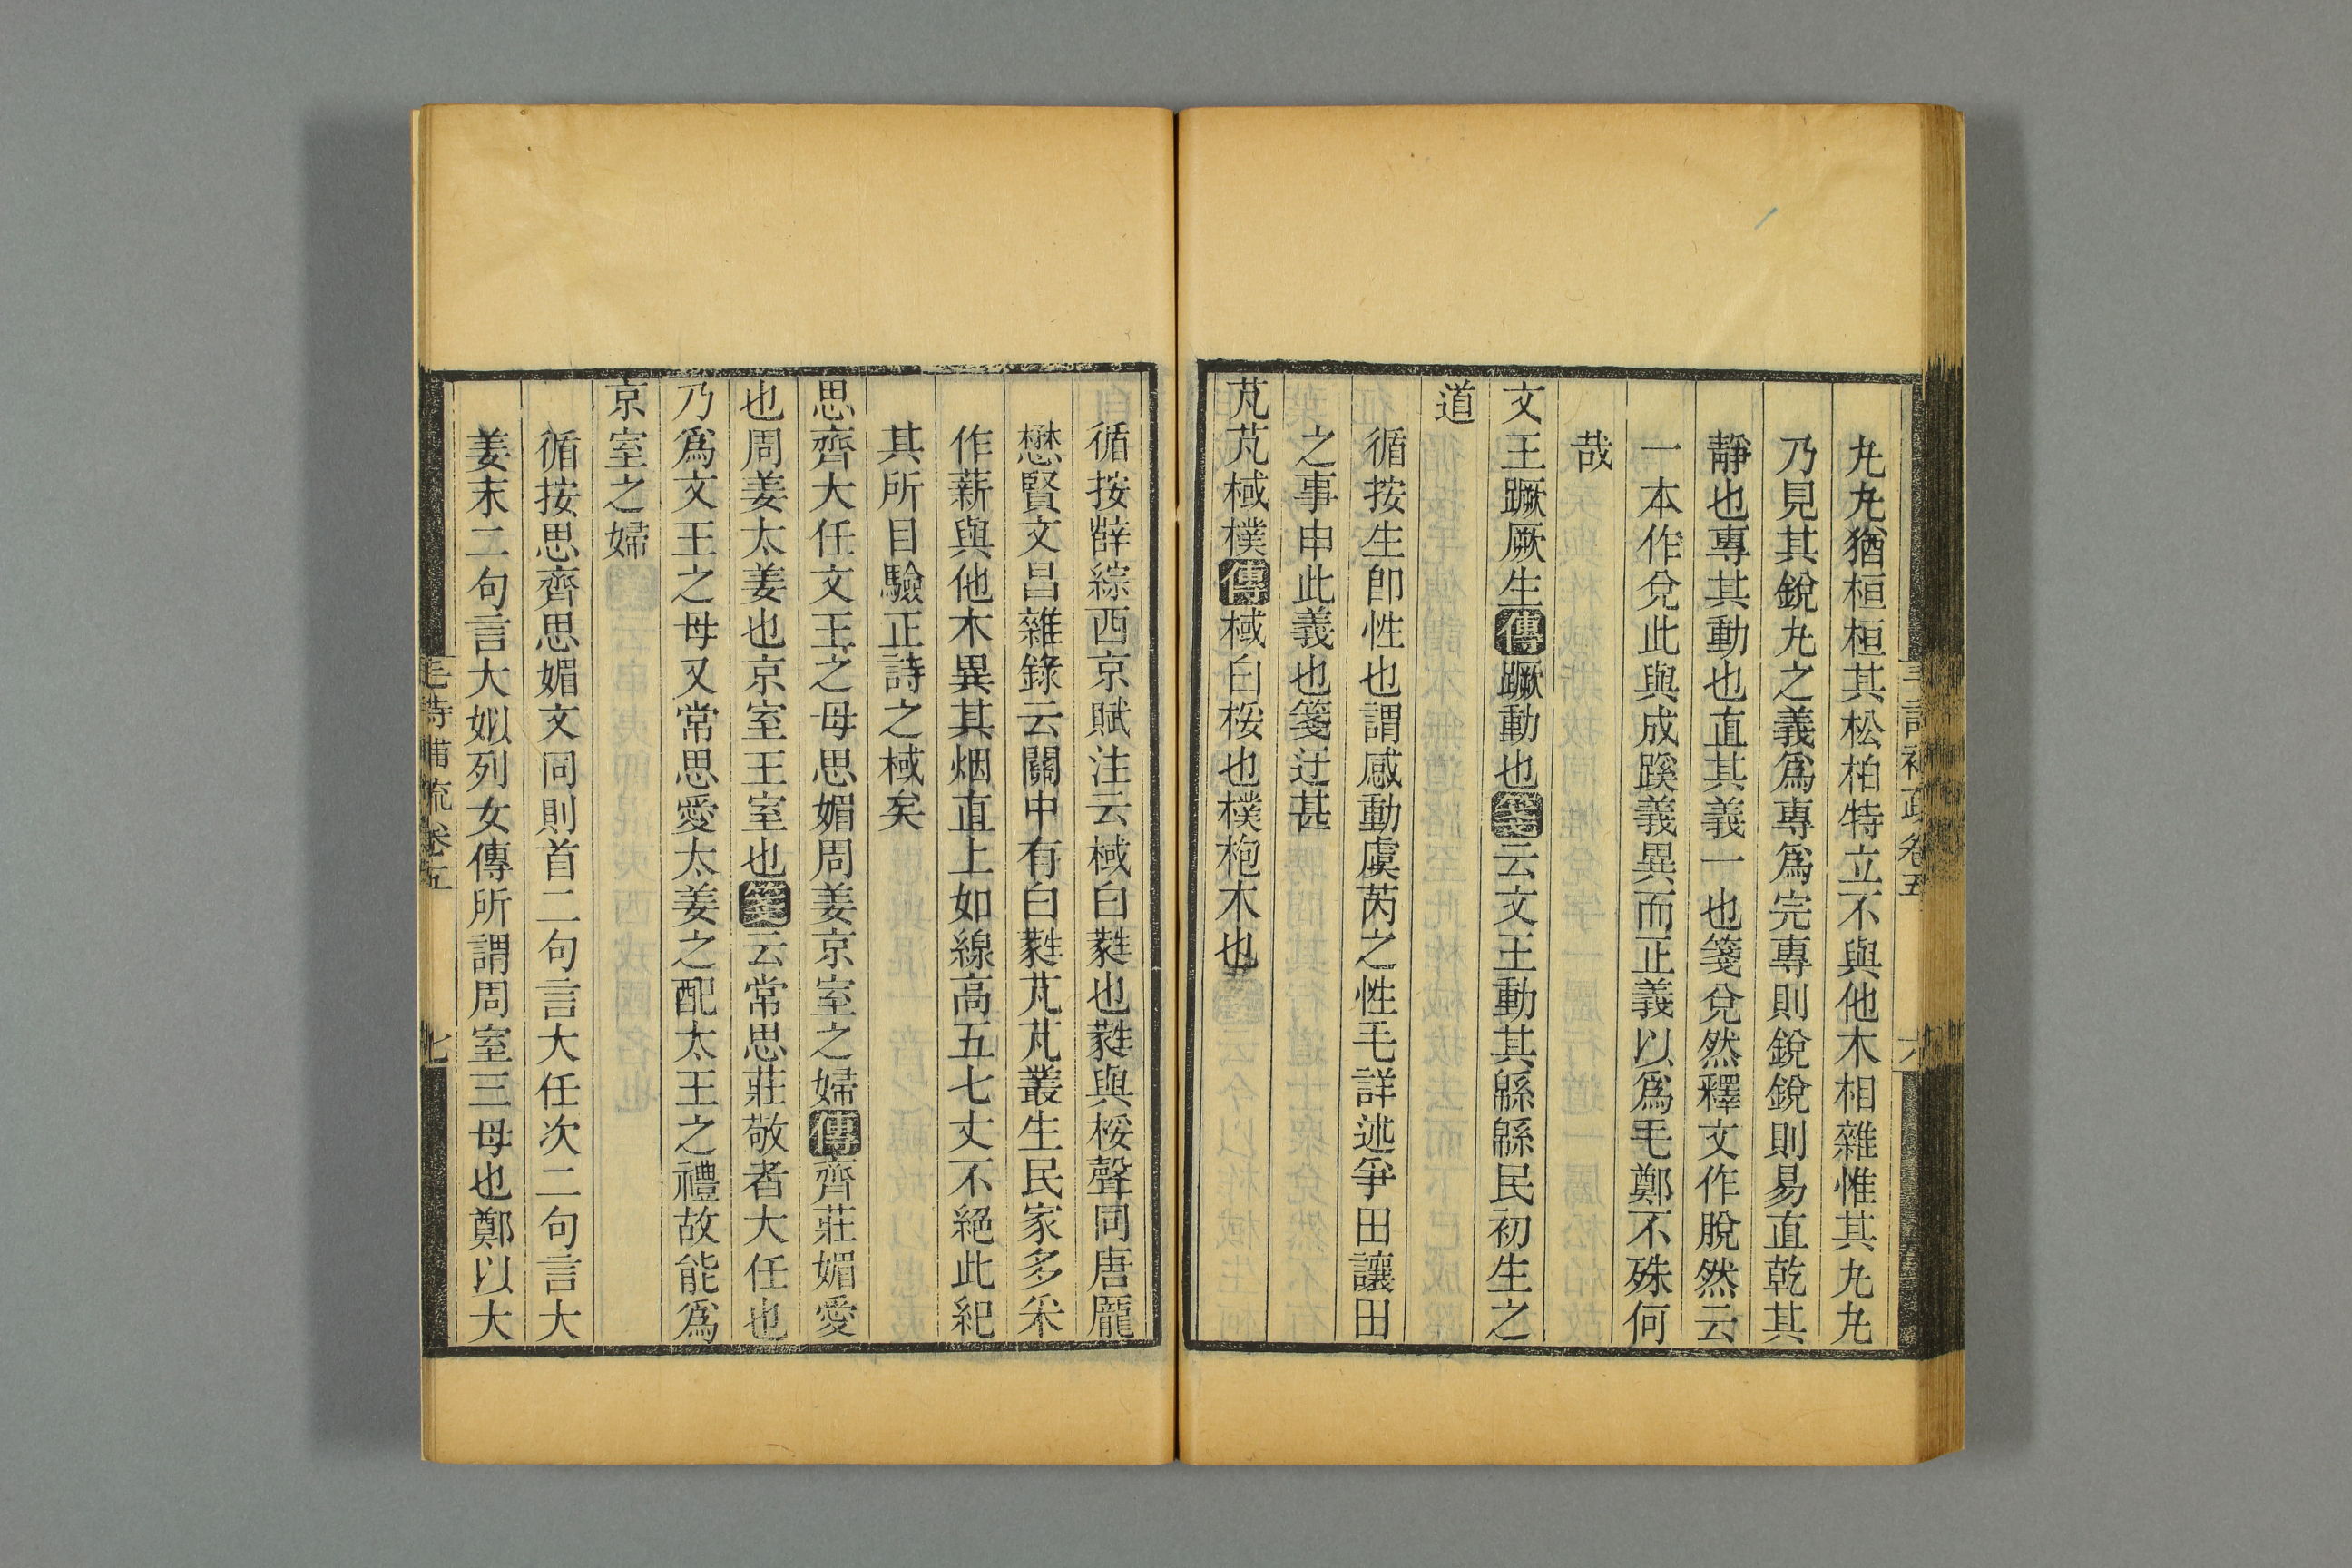 毛詩補疏卷五
六
丸丸猶桓桓其松柏特立不與他木相雜惟其丸丸
乃見其銳丸之義爲專爲完專則銳銳則易直乾其
靜也專其動也直其義一也箋兌然釋文作脫然云
一本作兌此與成蹊義異而正義以爲毛鄭不殊何
哉
文王蹶厥生傳蹶動也箋云文王動其緜緜民初生之
道
循按生卽性也謂感動虞芮之性毛詳述爭田讓田
之事申此義也箋迂甚
芃芃棫樸傳棫白桵也樸枹木也
循按薛綜西京賦注云棫白蕤也蕤與桵聲同唐龎
懋賢文昌雜錄云關中有白蕤芃芃叢生民家多采
作薪與他木異其烟直上如線高五七丈不絕此紀
其所目驗正詩之棫矣
思齊大任文王之母思媚周姜京室之婦傳齊莊媚愛
也周姜太姜也京室王室也箋云常思莊敬者大任也
乃爲文王之母又常思愛太姜之配太王之禮故能爲
京室之婦
循按思齊思媚文同則首二句言大任次二句言大
姜末二句言大姒列女傳所謂周室三母也鄭以大
毛詩補疏卷五
七